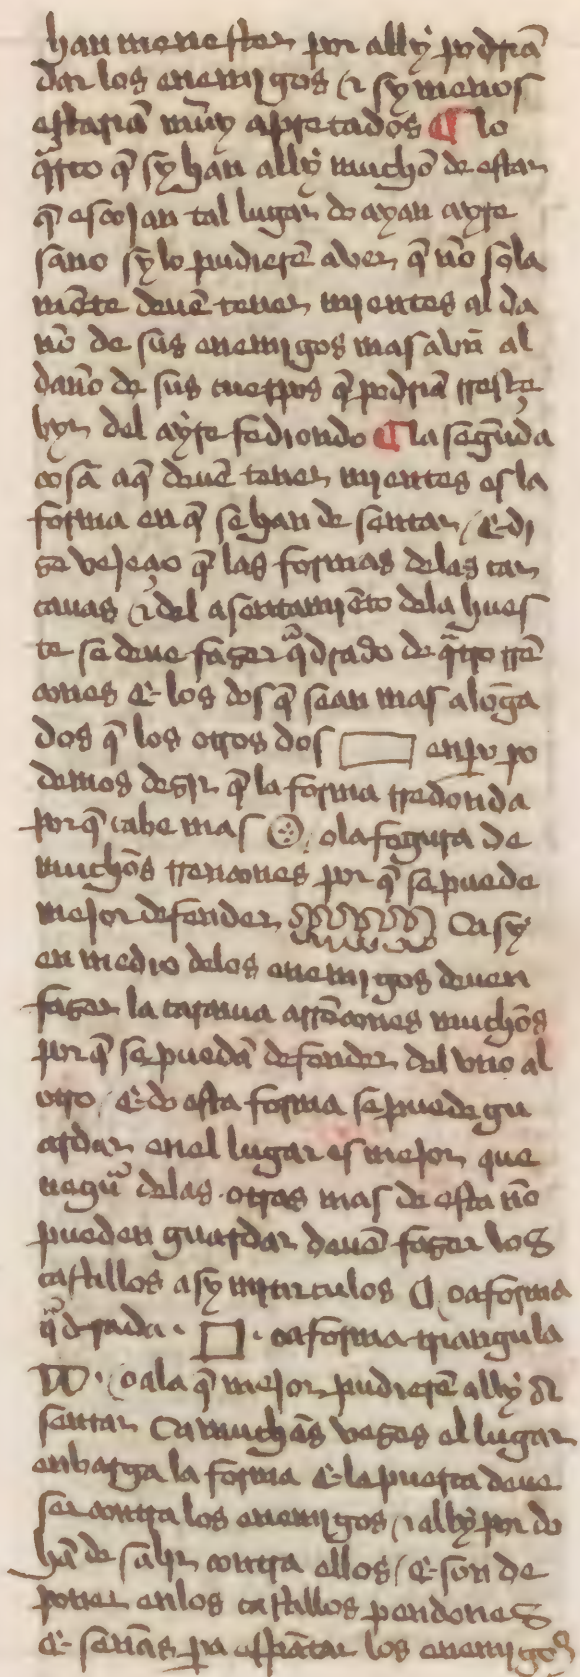 han menester por ally podrian
dar los enemigos & sy menos
estarian muy apretados ¶ lo
qͣrto q̃ sy han ally mucho de estar
q̃ escojan tal lugar do ayan ayre
sano sy lo pudierẽ aver q̃ nõ sola
mẽte deuẽ tener mientes al da
ño de sus enemigos mas avn al
daño de sus cuerpos q̃ podriã rresçe
byr del ayre fediondo ¶ la segũda
cosa a q̃ deuẽ tener mientes es la
forma en q̃ se han de sentar / E di
ze vejeçio q̃ las formas delas car
cauas & del asentamiẽto dela hues
te se deue fazer qͣdrado de qͣtro rrẽ
cones E los dos q̃ sean mas alõga
dos q̃ los otros dos enpo po
demos dezir q̃ la forma rredonda
por q̃ cabe mas o la fogura de
muchos rrencones por q̃ se puede
mejor defender Ca sy
en medio delos enemigos deuen
fazer la carcaua a rrẽcones muchos
por q̃ se puedã defender del vno al
otro / E do esta forma se puede gu
ardar en el lugar es mejor que
negũͣ delas otras mas do esta nõ
pueden guardar deuẽ fazer los
castillos a sy mirculos o a forma
qͣdrada . . o a forma triangula
. o a la q̃ mejor pudierẽ ally a
sentar Ca muchas vezes el lugar
enbarga la forma E la puerta deue
ser contra los enemigos / & ally por do
hã de salir contra ellos / E son de
poner enlos castillos pendones
E señas pa espãtar los enemigos